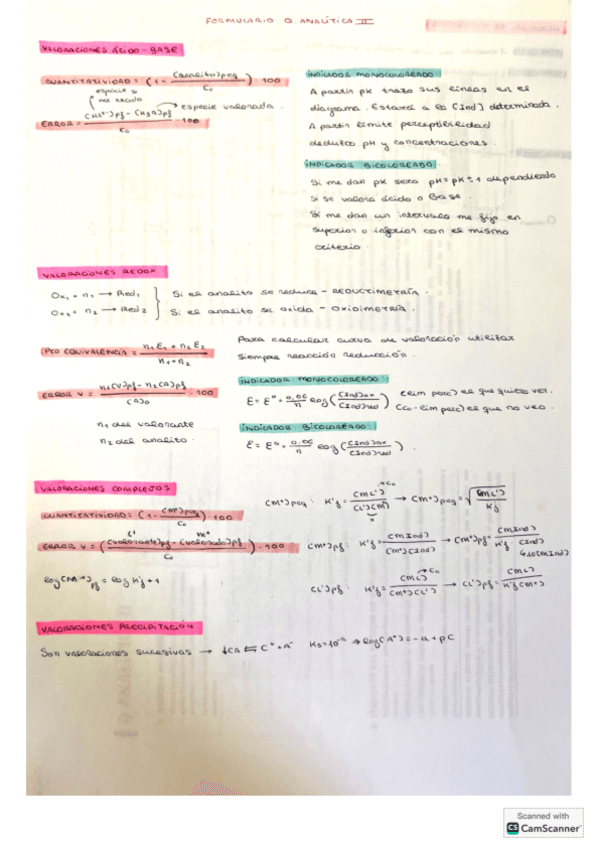 FORMULARIO Q. ANALÍTICA II
VALORACIONES ÁCIDO-BASE
CUANTITATIVIDAD = (1 - [analito]peq / C₀) · 100
especie q
me excedo
especie valorada
ERROR = [H₃O⁺]pf - [H₃A]pf / C₀ · 100
INDICADOR MONOCOLOREADO
A partir pK trazo sus líneas en el
diagrama. Estará a la [Ind] determinada.
A partir límite perceptibilidad
deduzco pH y concentraciones.
INDICADOR BICOLOREADO
Si me dan pK será pK = pK ± 1 dependiendo
si se valora ácido o Base.
Si me dan un intervalo me fijo en
superior o inferior con el mismo
criterio.
VALORACIONES REDOX
Ox₁ + n₁ → Red₁ } Si el analito se reduce - REDUCTIMETRÍA.
Ox₂ + n₂ → Red₂ } Si el analito se oxida - OXIDIMETRÍA.
PTO EQUIVALENCIA = n₁E₁ + n₂E₂ / n₁ + n₂
Para calcular curva de valoración utilizar
siempre reacción reducción.
ERROR V = n₁[V]pf - n₂[A]pf / [A]₀ · 100
n₁ del valorante
n₂ del analito.
INDICADOR MONOCOLOREADO
E = E° + 0.06/n log([Ind]ox / [Ind]red)
[lim perc] es que quiero ver.
[C₀ - lim perc] es que no veo.
INDICADOR BICOLOREADO
E = E° + 0.06/n log([Ind]ox / [Ind]red).
VALORACIONES COMPLEJOS
CUANTITATIVIDAD = (1 - [M⁺]peq / C₀) · 100
ERROR V = ([valorante]pf - [valorado]pf / C₀) · 100
L' M⁺
log[M⁺]pf = log K'f + 1
[M⁺]peq: K'f = [ML'] / [L'][M'] → [M⁺]peq = √([ML'] / K'f)
C₀
[M⁺]pf: K'f = [MInd] / [M⁺][Ind] → [M⁺]pf = [MInd] / K'f [Ind]
[L']pf: K'f = [ML] / [M⁺][L'] → [L']pf = [ML] / K'f[M⁺]
C₀
VALORACIONES PRECIPITACIÓN
Son valoraciones sucesivas → ↓CA ⇆ C⁺ + A⁻ Ks = 10⁻ᵃ ⇒ log[A⁻] = -a + pC
Scanned with
CS CamScanner